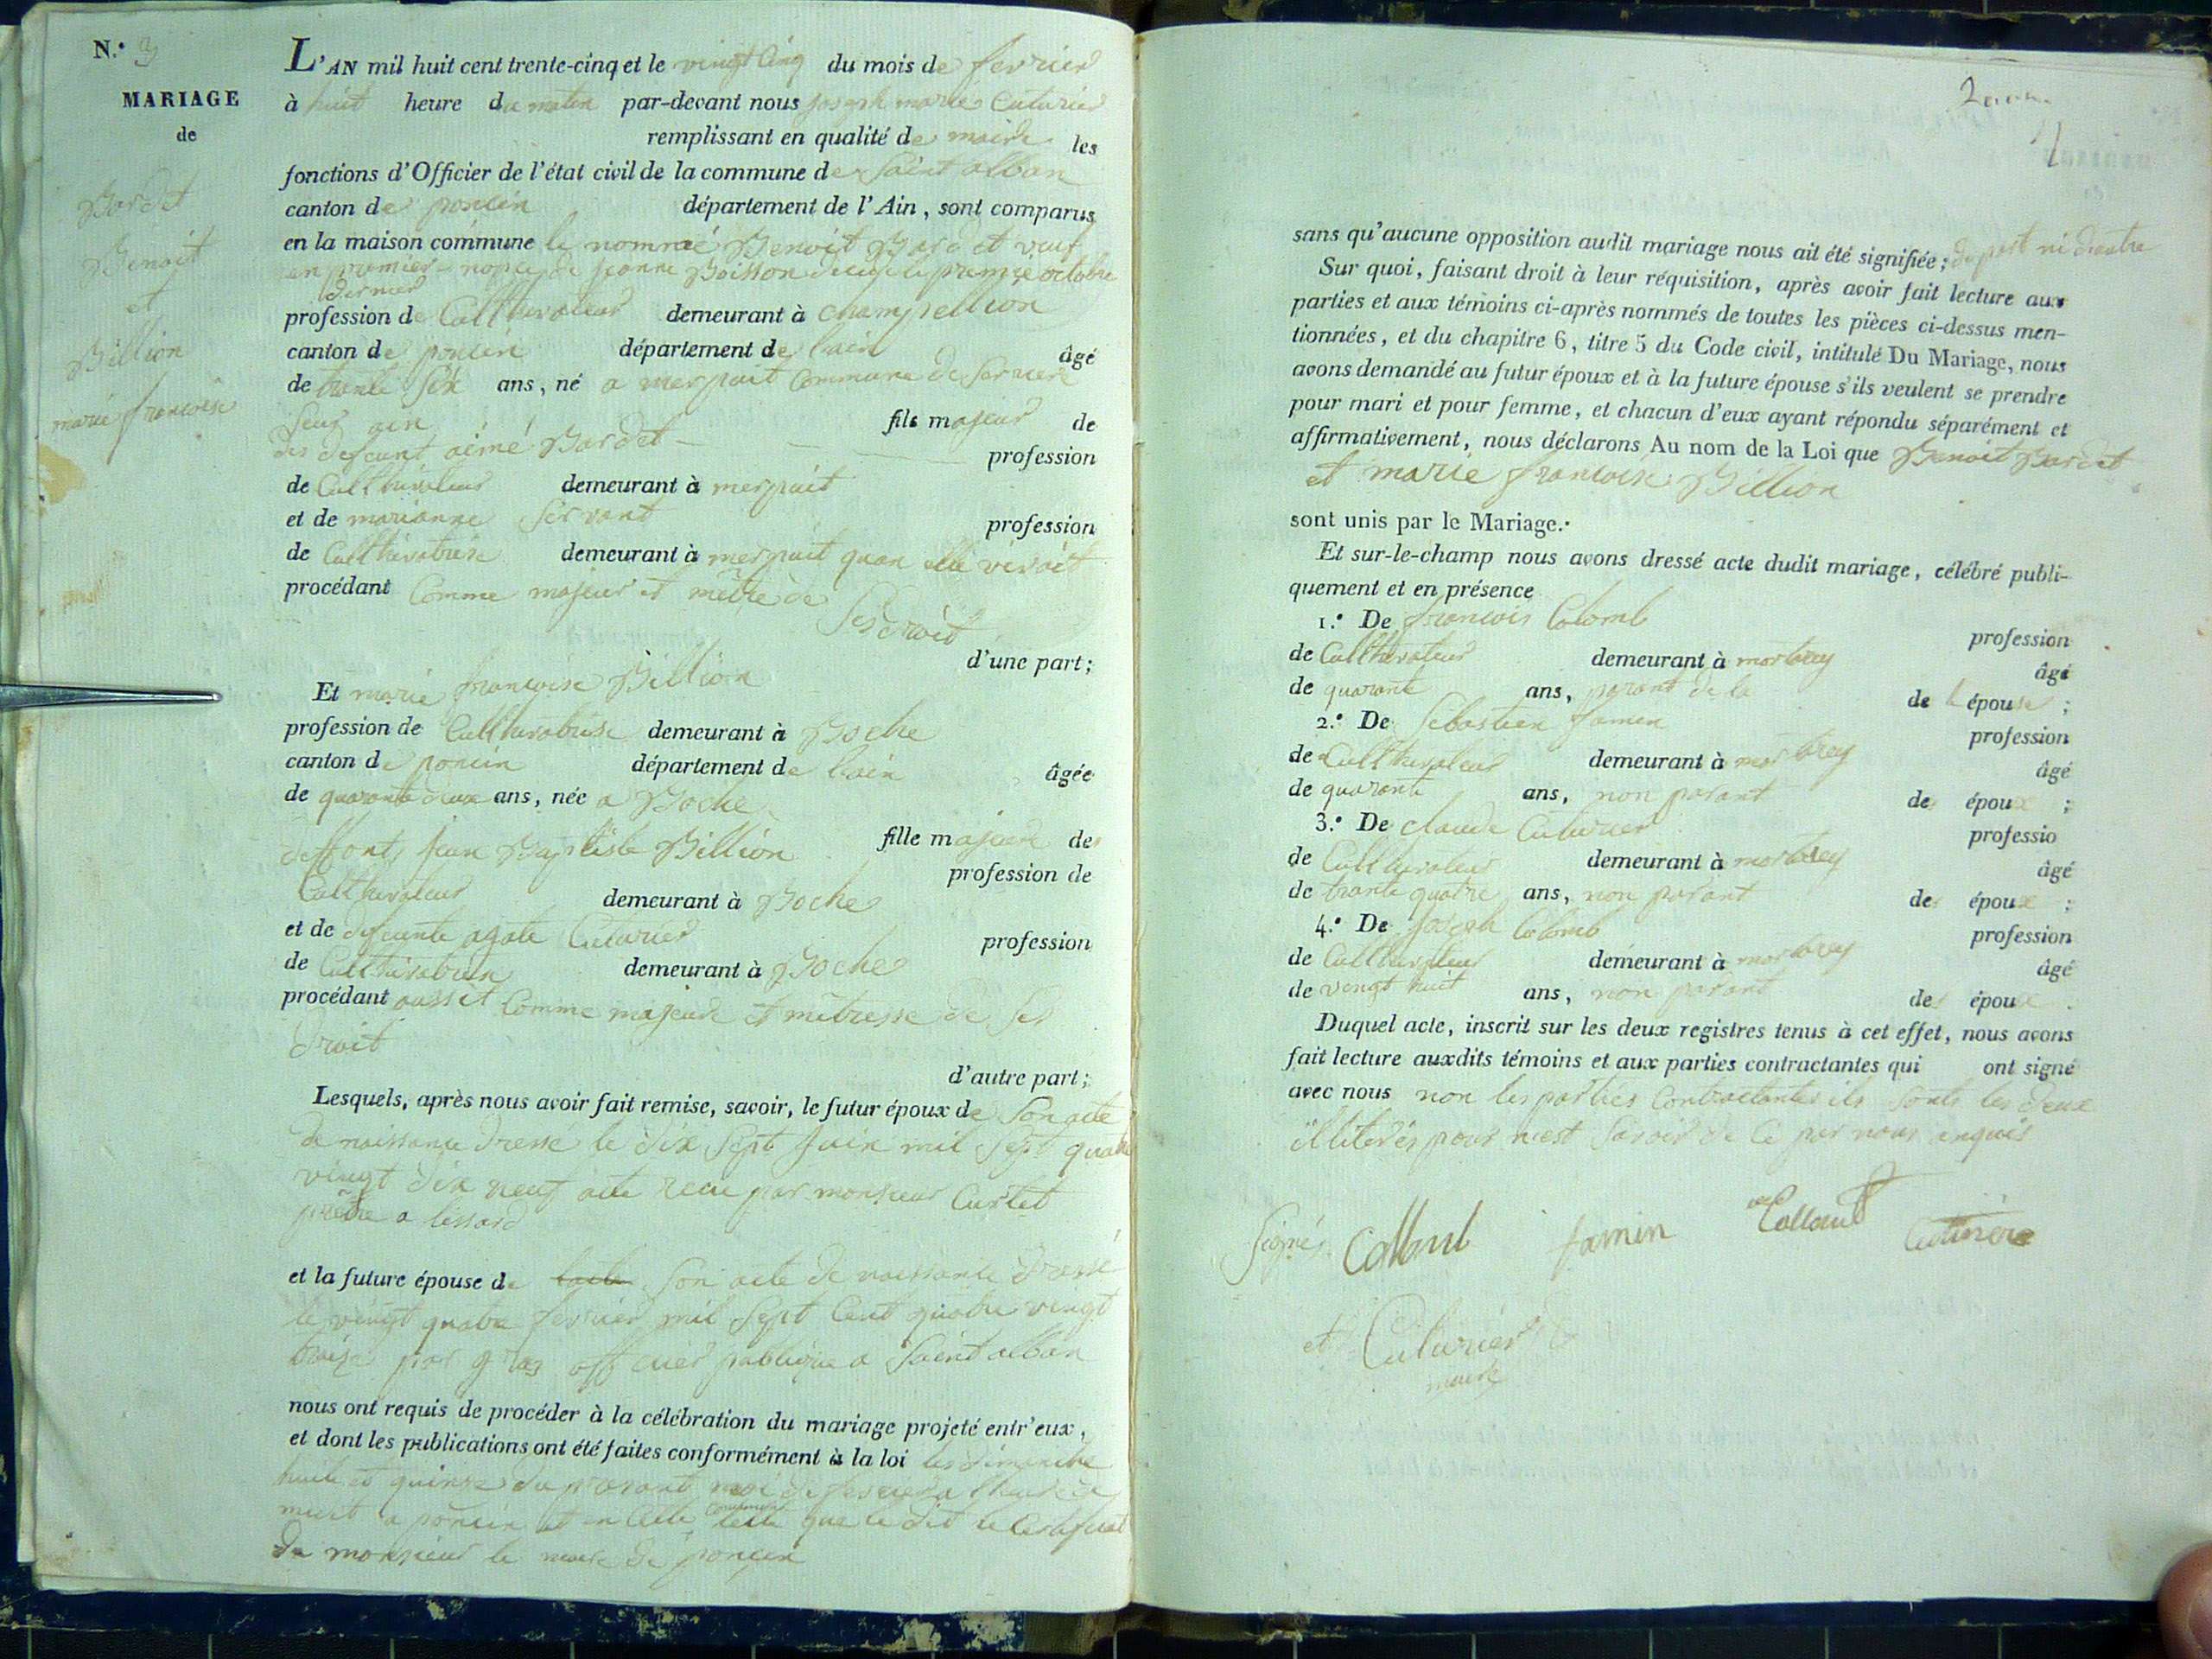 N.° 3
MARIAGE
de
Bardet
Benoit
et
Billion
marie francoise
L'AN mil huit cent trente-cinq et le vingt cinq du mois de fevrier
à huit heure du matin par-devant nous joseph marie Cuturier
remplissant en qualité de maire les
fonctions d'Officier de l'état civil de la commune de Saint alban
canton de poncin département de l'Ain, sont comparus
en la maison commune le nommé Benoit Bardet veuf
en premier nopce de jeanne Boisson décédé le premze octobre
dernier
profession de Culthivateur demeurant à champellion
canton de poncin département de lain âgé
de trante six ans, né a merpuit Commune de Serriere
seur ain fils majeur de
des defeunt aimé Bardet profession
de Culthivateur demeurant à merpuit
et de marianne Servant profession
de Culthivatrise demeurant à merpuit quan elle vivoit
procédant Comme majeur et mêtre de
Ses droit
d'une part;
Et marie francoise Billion
profession de Culthivatrise demeurant à Boche
canton de poncin département de lain âgée
de quarante deux ans, née a Boche
fille majeure des
deffont jean Baptiste Billion profession de
Culthivateur demeurant à Boche
et de defeunte agate Cuturier profession
de Culthivatrise demeurant à Boche
procédant aussit Comme majeure et mêtresse de Ses
droit
d'autre part;
Lesquels, après nous avoir fait remise, savoir, le futur époux de Son acte
de naissance dressé le dix Sept juin mil Sept quatre
vingt dix neuf acte recu par monsieur Curtet
prêtre a lissard
et la future épouse de Son acte de naissance dressé
le vingt quatre fevrier mil Sept Cent quatre vingt
traize par gras officier publique a Saint alban
nous ont requis de procéder à la célébration du mariage projeté entr'eux,
et dont les publications ont été faites conformément à la loi les dimanche
huite et quinze du prasant moi de fevrier a lheure de
midit a poncin et en Cette Commune telle que le dit le Ceraficat
de monsieur le maire de poncin
2
sans qu'aucune opposition audit mariage nous ait été signifiée; de part ni dautre
Sur quoi, faisant droit à leur réquisition, après avoir fait lecture aux
parties et aux témoins ci-après nommés de toutes les pièces ci-dessus men-
tionnées, et du chapitre 6, titre 5 du Code civil, intitulé Du Mariage, nous
avons demandé au futur époux et à la future épouse s'ils veulent se prendre
pour mari et pour femme, et chacun d'eux ayant répondu séparément et
affirmativement, nous déclarons Au nom de la Loi que Benoit Bardet
et marie francoise Billion
sont unis par le Mariage.
Et sur-le-champ nous avons dressé acte dudit mariage, célébré publi-
quement et en présence
1.° De francois Colomb profession
de Culthivateur demeurant à morbrey âgé
de quarante ans, parant de la de l épouse ;
2.° De Sebastien famin profession
de Culthivateur demeurant à morbrey âgé
de quarante ans, non parant des époux ;
3.° De claude Cuturier professio
de Culthivateur demeurant à morbrey âgé
de trante quatre ans, non parant des époux ;
4.° De joseph Colomb profession
de Culthivateur demeurant à morbrey âgé
de vingt huit ans, non parant des époux .
Duquel acte, inscrit sur les deux registres tenus à cet effet, nous avons
fait lecture auxdits témoins et aux parties contractantes qui ont signé
avec nous non les parties Contractantes ils Sonts les deux
illiterés pour nest Savoir de Ce par nous enquis
Signés Famin
et Cuturier
maire